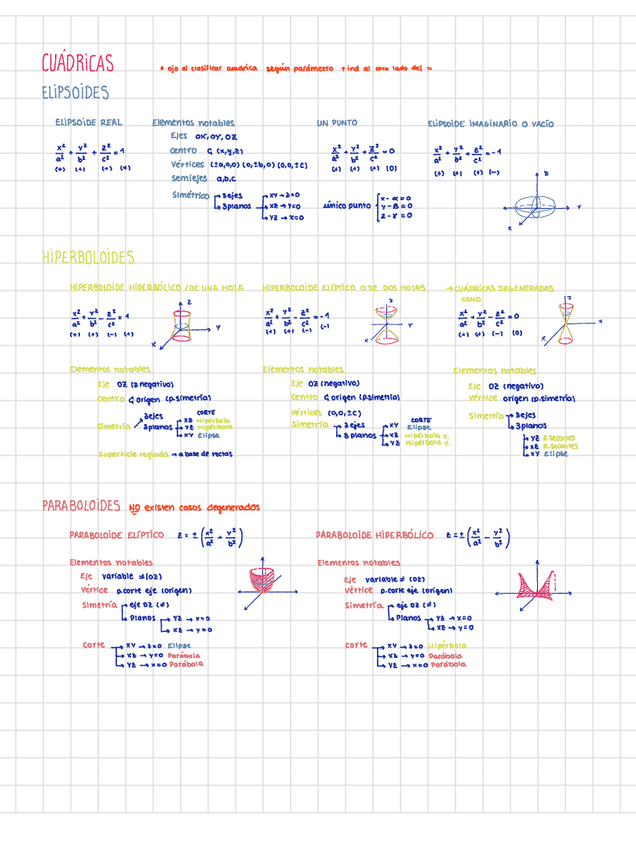 CUÁDRICAS
* ojo al clasificar cuadrica según parámetro + ind al otro lado del =
ELIPSOIDES
ELIPSOIDE REAL
x²/a² + y²/b² + z²/c² = 1
(+) (+) (+) (+)
Elementos notables
Ejes OX, OY, OZ
Centro
Vértices (±a,0,0) (0,±b,0) (0,0,±c)
Semiejes a,b,c
Simétrico → 3 ejes
→ 3 planos → XY → z=0
→ XZ → y=0
→ YZ → x=0
UN PUNTO
x²/a² + y²/b² + z²/c² = 0
(+) (+) (+) (0)
único punto { x-α=0
y-β=0
z-γ=0
ELIPSOIDE IMAGINARIO O VACÍO
x²/a² + y²/b² + z²/c² = -1
(+) (+) (+) (-)
z
Y
X
HIPERBOLOIDES
HIPERBOLOIDE HIPERBÓLICO / DE UNA HOJA
x²/a² + y²/b² - z²/c² = 1
(+) (+) (-) (+)
Z
Y
X
Elementos notables
Eje OZ (z negativo)
Centro G origen (p.simetría)
Simetría → 3 ejes
→ 3 planos
CORTE
→ XZ Hipérbola
→ YZ Hipérbola
→ XY Elipse
Superficie reglada → a base de rectas
HIPERBOLOIDE ELÍPTICO O DE DOS HOJAS
x²/a² + y²/b² - z²/c² = -1
(+) (+) (-) (-)
Z
Y
X
Elementos notables
Eje OZ (negativo)
Centro G origen (p.simetría)
Vértices (0,0,±c)
Simetría → 3 ejes
→ 3 planos
CORTE
→ XY Elipse
→ XZ Hipérbola V.
→ YZ Hipérbola V.
→ CUÁDRICAS DEGENERADAS
CONO
x²/a² + y²/b² - z²/c² = 0
(+) (+) (-) (0)
Z
X
Elementos notables
Eje OZ (negativo)
Vértice origen (p.simetría)
Simetría → 3 ejes
→ 3 planos
→ YZ R.Secantes
→ XZ R.Secantes
→ XY Elipse
PARABOLOIDES NO existen casos degenerados
PARABOLOIDE ELÍPTICO z = ± (x²/a² + y²/b²)
Elementos notables
Eje variable ≠ (OZ)
Vértice p.corte eje (origen)
Simetría → eje OZ (≠)
→ Planos → YZ → x=0
→ XZ → y=0
Corte → XY → z=0 Elipse
→ XZ → y=0 Parábola
→ YZ → x=0 Parábola
PARABOLOIDE HIPERBÓLICO z = ± (x²/a² - y²/b²)
Elementos notables
Eje variable ≠ (OZ)
Vértice p.corte eje (origen)
Simetría → eje OZ (≠)
→ Planos → YZ → x=0
→ XZ → y=0
Corte → XY → z=0 Hipérbola
→ XZ → y=0 Parábola
→ YZ → x=0 Parábola